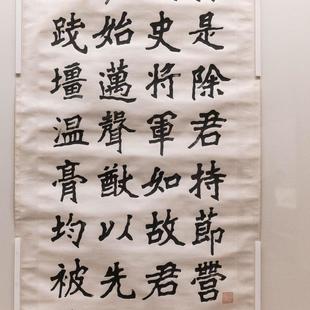 是除君持節營
史將軍如故君
始邁聲猷以先
踐壃温膏均被